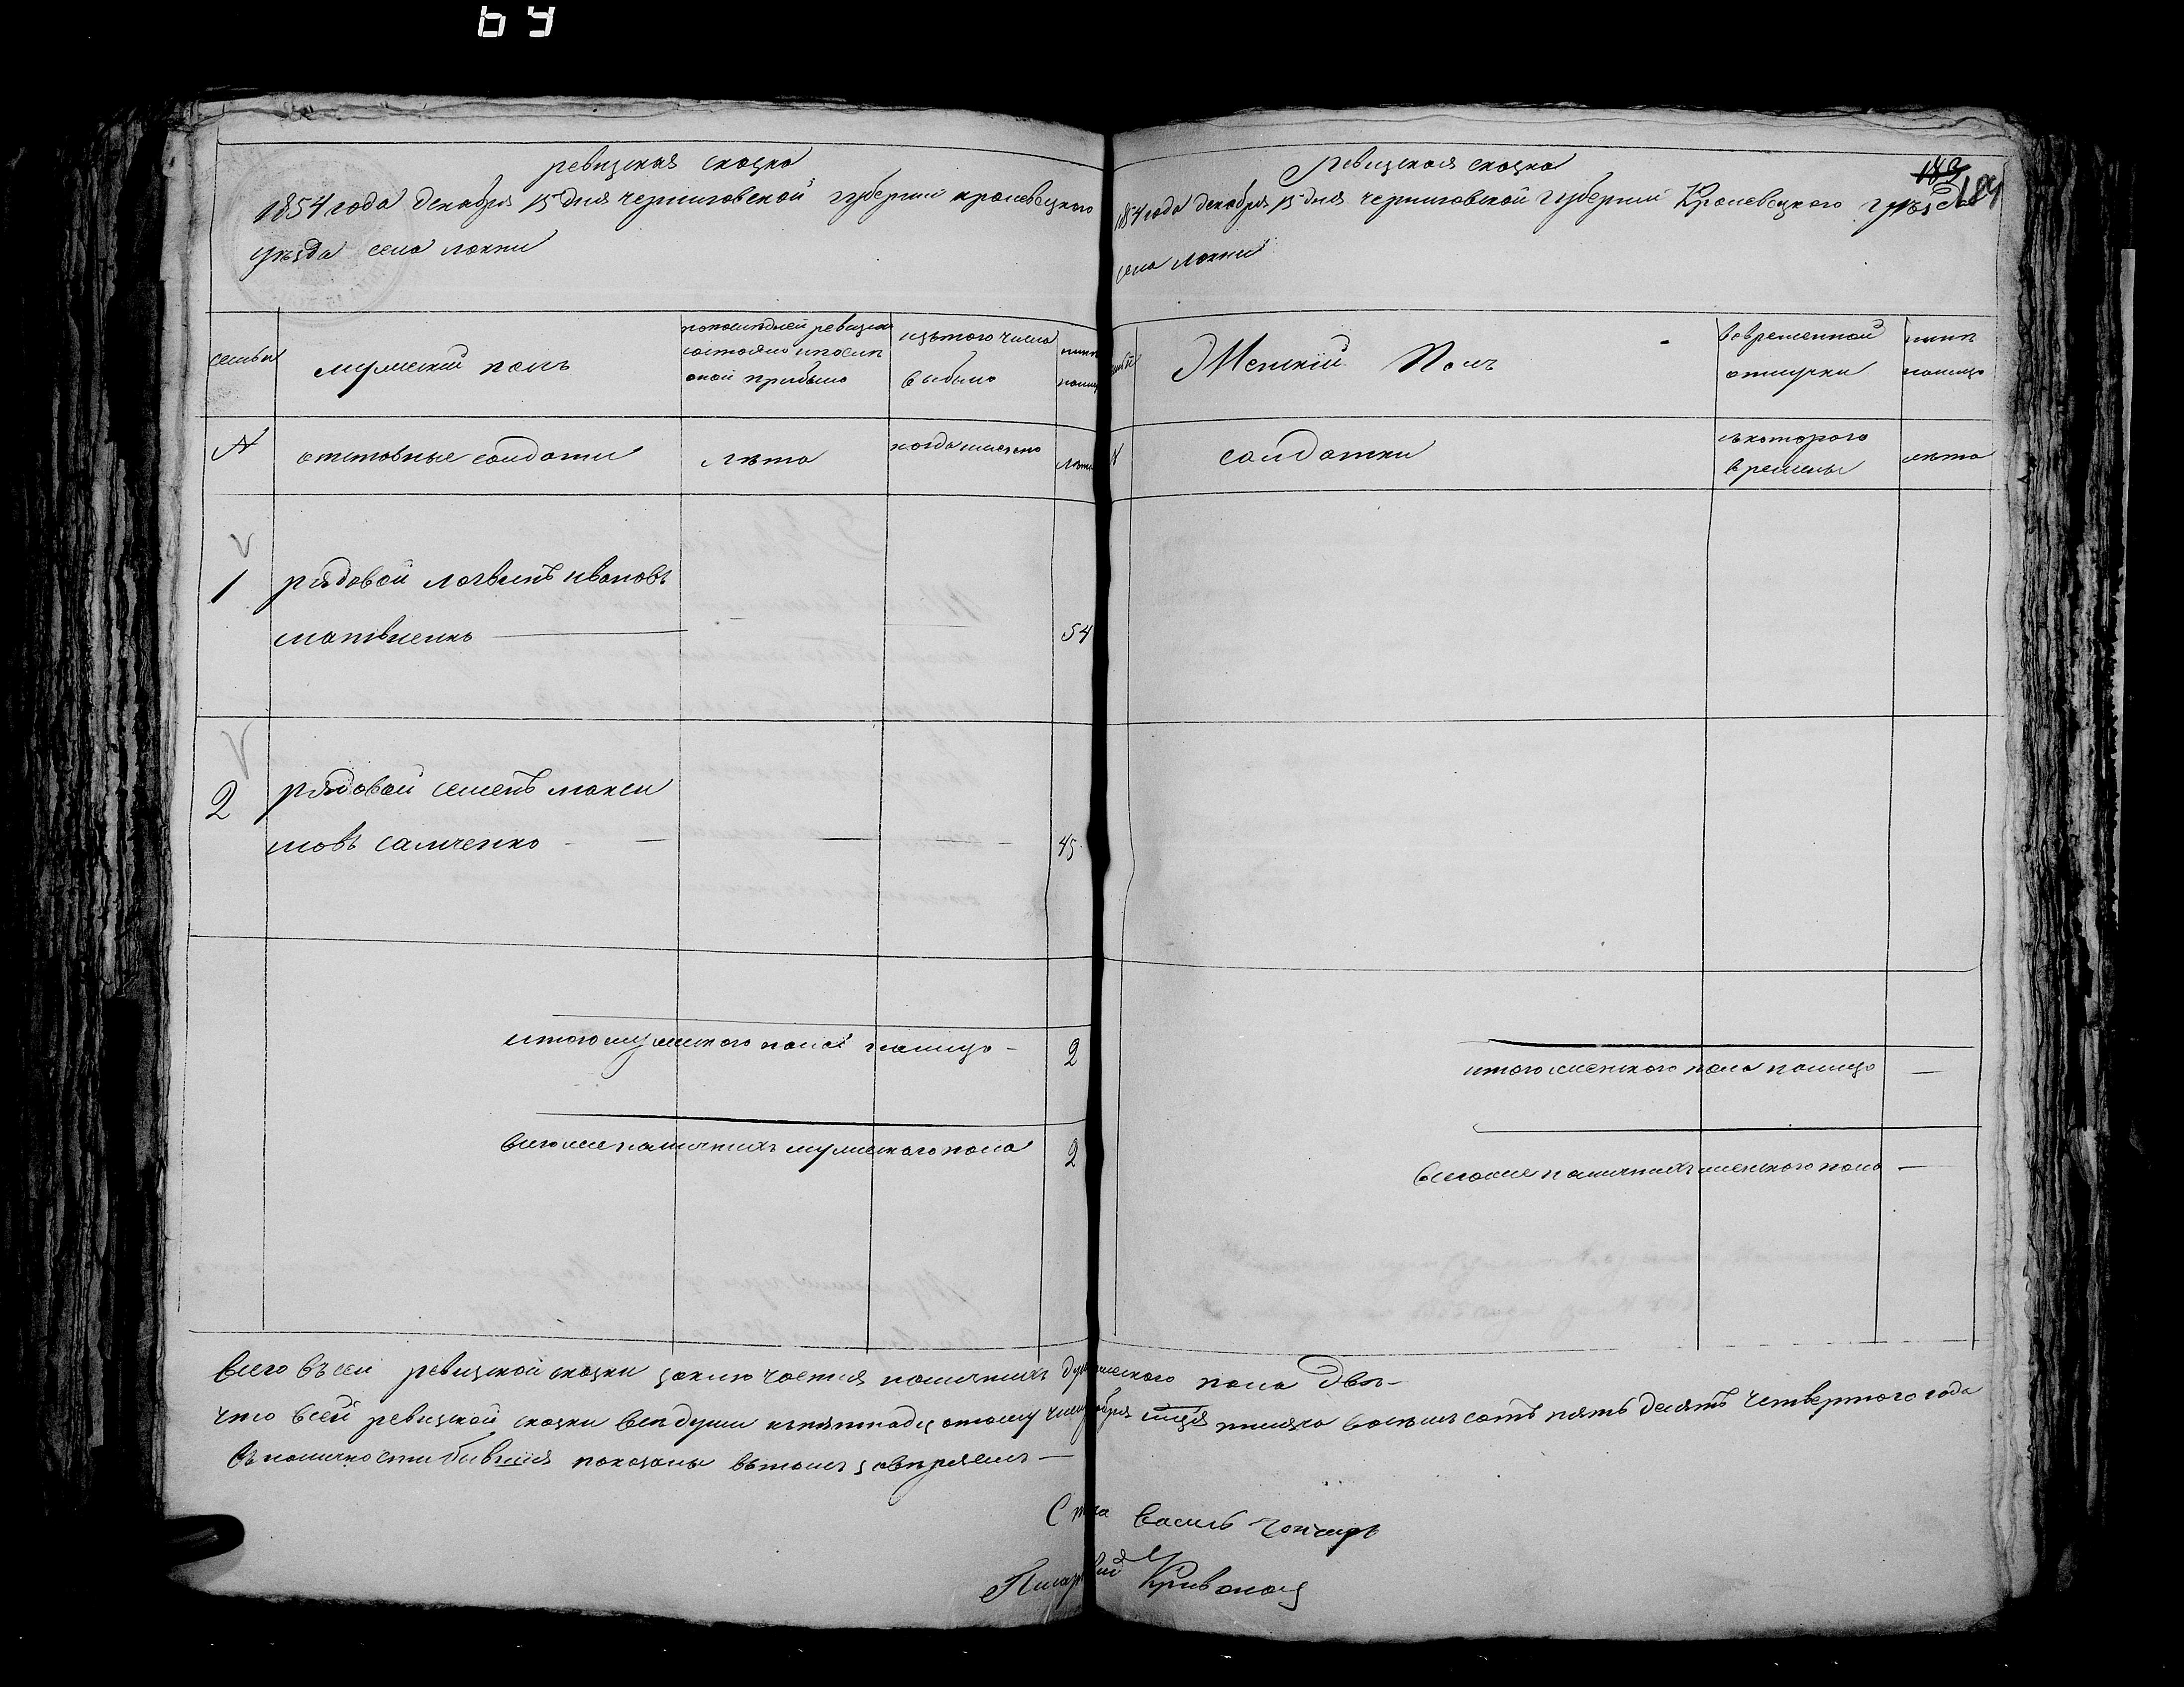 69
ревизская сказка
1854 года декабря 15 дня черниговской губернии кролевецкого
уѣзда села локни
семьи
мужеский полъ
выбыло
нынѣ
№
отставные солдати
лѣта
когда именно
лѣта
1
рядовой логвинъ ивановъ
матвіенко
54
2
рядовой семенъ макси
мовъ самченко
45
итого мужеского пола налицо
2
всегоже наличнихъ мужеского пола
2
Ревизская сказка
1854 года декабря 15 дня черниговской губернии Кролевецкого уѣзда
села локни
183
184
Женский Полъ
вовременной
отлучки
нынѣ
налицо
№
солдатки
съкоторого
времены
лѣта
итого женского пола налицо —
всегоже наличнихъ женского пола —
всего въ сей ревизской сказки заключается наличнихъ душ мужеского пола двѣ
что всей ревизской сказки всѣ души къ пятнадцатому тисяча восемь сотъ пять десятъ четвертого года
въ наличности бившия показаны вътомъ завѣряемъ
Василь гончаръ
Писарь Кривонос